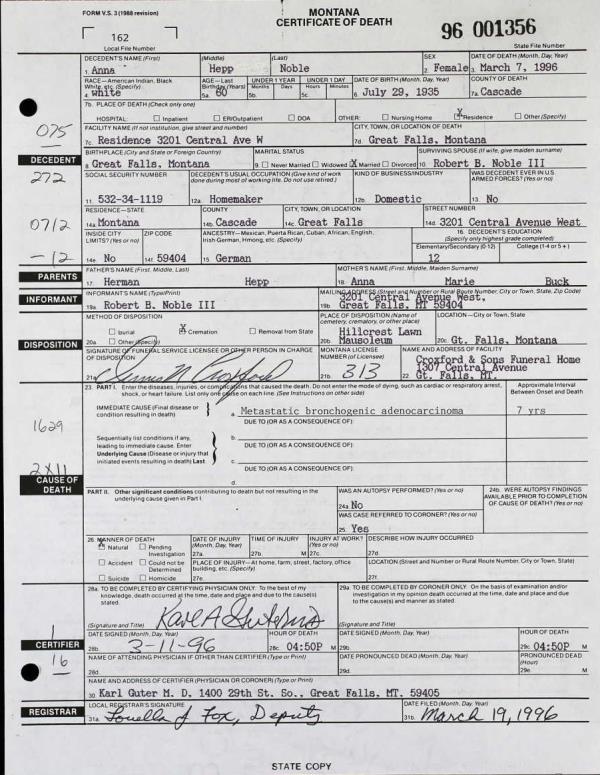 FORM V.S. 3 (1988 revision)
MONTANA
CERTIFICATE OF DEATH
96 001356
162
Local File Number
State File Number
DECEDENT'S NAME (First) (Middle) (Last) SEX DATE OF DEATH (Month, Day, Year)
1. Anna Hepp Noble 2. Female 3. March 7, 1996
RACE—American Indian, Black White, etc. (Specify) AGE—Last Birthday (Years) UNDER 1 YEAR Months Days UNDER 1 DAY Hours Minutes DATE OF BIRTH (Month, Day, Year) COUNTY OF DEATH
4. white 5a. 60 5b. 5c. 6. July 29, 1935 7a. Cascade
7b. PLACE OF DEATH (Check only one)
HOSPITAL: Inpatient ER/Outpatient DOA OTHER: Nursing Home X Residence Other (Specify)
075
FACILITY NAME (If not institution, give street and number) CITY, TOWN, OR LOCATION OF DEATH
7c. Residence 3201 Central Ave W 7d. Great Falls, Montana
DECEDENT
BIRTHPLACE (City and State or Foreign Country) MARITAL STATUS SURVIVING SPOUSE (If wife, give maiden surname)
8. Great Falls, Montana 9. Never Married Widowed X Married Divorced 10. Robert B. Noble III
272
SOCIAL SECURITY NUMBER DECEDENT'S USUAL OCCUPATION (Give kind of work done during most of working life. Do not use retired.) KIND OF BUSINESS/INDUSTRY WAS DECEDENT EVER IN U.S. ARMED FORCES? (Yes or No)
11. 532-34-1119 12a. Homemaker 12b. Domestic 13. No
0712
RESIDENCE—STATE COUNTY CITY, TOWN, OR LOCATION STREET NUMBER
14a. Montana 14b. Cascade 14c. Great Falls 14d. 3201 Central Avenue West
INSIDE CITY LIMITS? (Yes or no) ZIP CODE ANCESTRY—Mexican, Puerto Rican, Cuban, African, English, Irish-German, Hmong, etc. (Specify) 16. DECEDENT'S EDUCATION (Specify only highest grade completed)
Elementary/Secondary (0-12) College (1-4 or 5+)
-12
14e. No 14f. 59404 15. German 12
PARENTS
FATHER'S NAME (First, Middle, Last) MOTHER'S NAME (First, Middle, Maiden Surname)
17. Herman Hepp 18. Anna Marie Buck
INFORMANT
INFORMANT'S NAME (Type/Print) MAILING ADDRESS (Street and Number or Rural Route Number, City or Town, State, Zip Code)
19a. Robert B. Noble III 19b. 3201 Central Avenue West, Great Falls, MT 59404
METHOD OF DISPOSITION PLACE OF DISPOSITION (Name of cemetery, crematory, or other place) LOCATION—City or Town, State
burial X Cremation Removal from State
20a. Other (Specify) 20b. Hillcrest Lawn Mausoleum 20c. Gt. Falls, Montana
DISPOSITION
SIGNATURE OF FUNERAL SERVICE LICENSEE OR OTHER PERSON IN CHARGE OF DISPOSITION MONTANA LICENSE NUMBER (of Licensee) NAME AND ADDRESS OF FACILITY
21a. 21b. 313 22. Croxford & Sons Funeral Home 1307 Central Avenue Gt. Falls, MT.
23. PART I. Enter the diseases, injuries, or complications that caused the death. Do not enter the mode of dying, such as cardiac or respiratory arrest, shock, or heart failure. List only one cause on each line. (See Instructions on other side) Approximate Interval Between Onset and Death
IMMEDIATE CAUSE (Final disease or condition resulting in death) a. Metastatic bronchogenic adenocarcinoma 7 yrs
DUE TO (OR AS A CONSEQUENCE OF):
1629
Sequentially list conditions if any, leading to immediate cause. Enter Underlying Cause (Disease or injury that initiated events resulting in death) Last
b.
DUE TO (OR AS A CONSEQUENCE OF):
c.
DUE TO (OR AS A CONSEQUENCE OF):
d.
CAUSE OF DEATH
PART II. Other significant conditions contributing to death but not resulting in the underlying cause given in Part I. WAS AN AUTOPSY PERFORMED? (Yes or no) 24b. WERE AUTOPSY FINDINGS AVAILABLE PRIOR TO COMPLETION OF CAUSE OF DEATH? (Yes or no)
24a. No
WAS CASE REFERRED TO CORONER? (Yes or no)
25. Yes
26. MANNER OF DEATH DATE OF INJURY (Month, Day, Year) TIME OF INJURY INJURY AT WORK? (Yes or no) DESCRIBE HOW INJURY OCCURRED
X Natural Pending Investigation 27a. 27b. M 27c. 27d.
Accident Could not be Determined PLACE OF INJURY—At home, farm, street, factory, office building, etc. (Specify) LOCATION (Street and Number or Rural Route Number, City or Town, State)
Suicide Homicide 27e. 27f.
28a. TO BE COMPLETED BY CERTIFYING PHYSICIAN ONLY: To the best of my knowledge, death occurred at the time, date and place and due to the cause(s) stated. 29a. TO BE COMPLETED BY CORONER ONLY. On the basis of examination and/or investigation in my opinion death occurred at the time, date and place and due to the cause(s) and manner as stated.
(Signature and Title) Karl A Guter MD (Signature and Title)
1
CERTIFIER
DATE SIGNED (Month, Day, Year) HOUR OF DEATH DATE SIGNED (Month, Day, Year) HOUR OF DEATH
28b. 3-11-96 28c. 04:50P M 29b. 29c. 04:50P M
16
NAME OF ATTENDING PHYSICIAN IF OTHER THAN CERTIFIER (Type or Print) DATE PRONOUNCED DEAD (Month, Day, Year) PRONOUNCED DEAD (Hour)
28d. 29d. 29e. M
NAME AND ADDRESS OF CERTIFIER (PHYSICIAN OR CORONER) (Type or Print)
30. Karl Guter M. D. 1400 29th St. So., Great Falls, MT. 59405
REGISTRAR
LOCAL REGISTRAR'S SIGNATURE DATE FILED (Month, Day, Year)
31a. Louella J Fox, Deputy 31b. March 19, 1996
STATE COPY